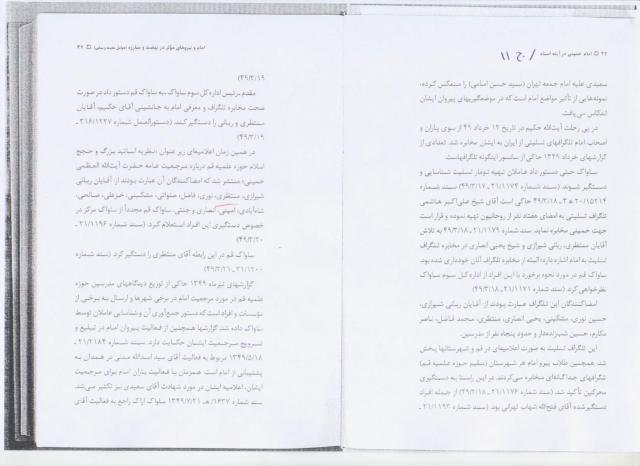 ۳۶ □ امام خمینی در آینه اسناد / ج ۱۱
سعیدی علیه امام جمعه تهران (سید حسن امامی) را منعکس کرده،
نمونه‌هایی از تأثیر مواضع امام است که در موضعگیریهای پیروان ایشان
انعکاس می‌یافت.
در پی رحلت آیت‌الله حکیم در تاریخ ۱۲ خرداد ۴۹ از سوی یاران و
اصحاب امام تلگرافهای تسلیتی از ایران به ایشان مخابره شد. تعدادی از
گزارشهای خرداد ۱۳۴۹ حاکی از سانسور اینگونه تلگرافهاست.
ساواک حتی دستور داد عاملان تهیه تومار تسلیت شناسایی و
دستگیر شوند. (سند شماره ۲۱/۱۱۷۴ـ ۴۹/۳/۱۷) سند شماره
۲۰/۱۵۲۱۴ هـ ۳ـ ۴۹/۳/۱۸ حاکی است آقای شیخ علی‌اکبر هاشمی
تلگراف تسلیتی به امضای هفتاد نفر از روحانیون تهیه نموده و قرار است
جهت خمینی مخابره نماید. سند شماره ۲۱/۱۱۷۹ـ ۴۹/۳/۱۸ به تلاش
آقایان منتظری، ربانی شیرازی و شیخ یحیی انصاری در مخابره تلگراف
تسلیت به امام اشاره دارد؛ البته از مخابره تلگراف آنان خودداری شده بود.
ساواک قم در مورد نحوه برخورد با این افراد از اداره کل سوم ساواک
نظرخواهی کرد. (سند شماره ۲۱/۱۱۷۱ـ ۴۹/۳/۱۸)
امضاکنندگان این تلگراف عبارت بودند از: آقایان ربانی شیرازی،
حسین نوری، مشکینی، یحیی انصاری، منتظری، محمد فاضل، ناصر
مکارم، حسین شب‌زنده‌دار و حدود پنجاه نفر از مدرسین.
این تلگراف تسلیت به صورت اعلامیه‌ای در قم و شهرستانها پخش
شد. همچنین طلاب پیرو امام هر شهرستان (مقیم حوزه علمیه قم)
تلگرافهای جداگانه‌ای مخابره می‌کردند. در این راستا به دستگیری
محرکین تأکید شد. (سند شماره ۲۱/۱۱۷۶ـ ۴۹/۳/۱۸) از جمله افراد
دستگیرشده آقای فتح‌الله شهاب تهرانی بود. (سند شماره ۲۱/۱۱۹۳ـ
امام و نیروهای مؤثر در نهضت و مبارزه □ ۳۷
۴۹/۳/۱۹)
مقدم ـ رئیس اداره کل سوم ساواک ـ به ساواک قم دستور داد در صورت
صحت مخابره تلگراف و معرفی امام به جانشینی آقای حکیم، آقایان
منتظری و ربانی را دستگیر کند. (دستورالعمل شماره ۳۱۶/۱۲۲۷ـ
۴۹/۳/۱۹)
در همین زمان اعلامیه‌ای زیر عنوان «نظریه اساتید بزرگ و حجج
اسلام حوزه علمیه قم درباره مرجعیت عامه حضرت آیت‌الله العظمی
خمینی» منتشر شد که امضاکنندگان آن عبارت بودند از: آقایان ربانی
شیرازی، منتظری، نوری، فاضل، صلواتی، مشکینی، خزعلی، صالحی،
شاه‌آبادی، امینی، انصاری و جنتی. ساواک قم مجدداً از ساواک مرکز در
خصوص دستگیری این افراد استعلام کرد. (سند شماره ۲۱/۱۱۹۶ـ
۴۹/۳/۲۰)
ساواک قم در این رابطه آقای منتظری را دستگیر کرد. (سند شماره
۲۱/۱۲۰۰ـ ۴۹/۳/۲۱)
گزارشهای تیرماه ۱۳۴۹ حاکی از توزیع دیدگاههای مدرسین حوزه
علمیه قم در مورد مرجعیت امام در برخی شهرها و ارسال به برخی از
مؤسسات و افراد است که دستور جمع‌آوری آن و شناسایی عاملان توسط
ساواک داده شد. گزارشها همچنین از فعالیت پیروان امام در تبلیغ و
ترویج مرجعیت ایشان حکایت دارد. سند شماره ۲۱/۲۱۸۴ـ
۱۳۴۹/۵/۱۸ مربوط به فعالیت آقای سید اسدالله مدنی در همدان به
پشتیبانی از امام است. همزمان با فعالیت یاران امام برای مرجعیت
ایشان، اعلامیه ایشان در مورد شهادت آقای سعیدی نیز تکثیر می‌شد.
سند شماره ۱۶۳۷/ هـ ـ ۱۳۴۹/۷/۲۱ ساواک اراک راجع به فعالیت آقای